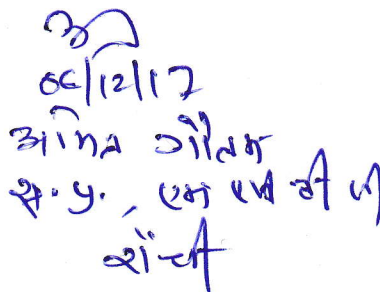 06/12/17
अमित गौतम
स. प्र., एम एस वी पी
राँची